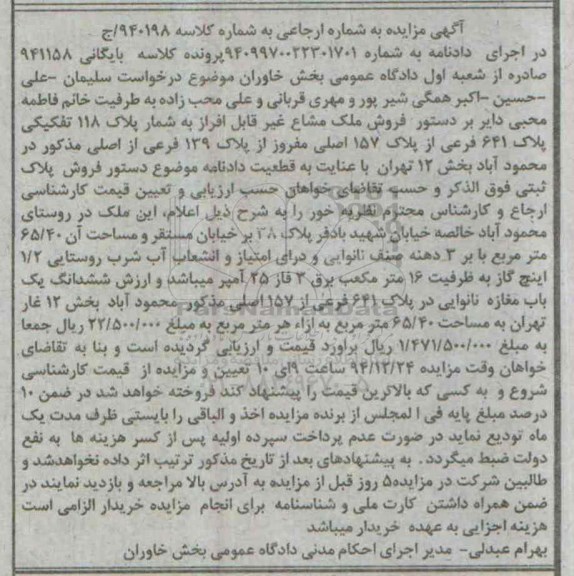 آگهی مزایده به شماره ارجاعی به شماره کلاسه ۹۴۰۱۹۸/ج
در اجرای دادنامه به شماره ۹۴۰۹۹۷۰۰۲۲۳۰۱۷۰۱پرونده کلاسه بایگانی ۹۴۱۱۵۸
صادره از شعبه اول دادگاه عمومی بخش خاوران موضوع درخواست سلیمان -علی
-حسین -اکبر همگی شیر پور و مهری قربانی و علی محب زاده به طرفیت خانم فاطمه
محبی دایر بر دستور فروش ملک مشاع غیر قابل افراز به شمار پلاک ۱۱۸ تفکیکی
پلاک ۶۴۱ فرعی از پلاک ۱۵۷ اصلی مفروز از پلاک ۱۳۹ فرعی از اصلی مذکور در
محمود آباد بخش ۱۲ تهران با عنایت به قطعیت دادنامه موضوع دستور فروش پلاک
ثبتی فوق الذکر و حسب تقاضای خواهان حسب ارزیابی و تعیین قیمت کارشناسی
ارجاع و کارشناس محترم نظریه خور را به شرح ذیل اعلام، این ملک در روستای
محمود آباد خالصه خیابان شهید بادفر پلاک ۳۸ بر خیابان مستقر و مساحت آن ۶۵/۴۰
متر مربع با بر ۳ دهنه صنف نانوایی و درای امتیاز و انشعاب آب شرب روستایی ۱/۲
اینچ گاز به ظرفیت ۱۶ متر مکعب برق ۳ فاز ۲۵ آمپر میباشد و ارزش ششدانگ یک
باب مغازه نانوایی در پلاک ۶۴۱ فرعی از ۱۵۷ اصلی مذکور محمود آباد بخش ۱۲ غار
تهران به مساحت ۶۵/۴۰ متر مربع به ازاء هر متر مربع به مبلغ ۲۲/۵۰۰/۰۰۰ ریال جمعا
به مبلغ ۱/۴۷۱/۵۰۰/۰۰۰ ریال براورد قیمت و ارزیابی گردیده است و بنا به تقاضای
خواهان وقت مزایده ۹۴/۱۲/۲۴ ساعت ۹الی ۱۰ تعیین و مزایده از قیمت کارشناسی
شروع و به کسی که بالاترین قیمت را پیشنهاد کند فروخته خواهد شد در ضمن ۱۰
درصد مبلغ پایه فی ا لمجلس از برنده مزایده اخذ و الباقی را بایستی ظرف مدت یک
ماه تودیع نماید در صورت عدم پرداخت سپرده اولیه پس از کسر هزینه ها به نفع
دولت ضبط میگردد . به پیشنهادهای بعد از تاریخ مذکور ترتیب اثر داده نخواهدشد و
طالبین شرکت در مزایده۵ روز قبل از مزایده به آدرس بالا مراجعه و بازدید نمایند در
ضمن همراه داشتن کارت ملی و شناسنامه برای انجام مزایده خریدار الزامی است
هزینه اجرایی به عهده خریدار میباشد
بهرام عبدلی- مدیر اجرای احکام مدنی دادگاه عمومی بخش خاوران